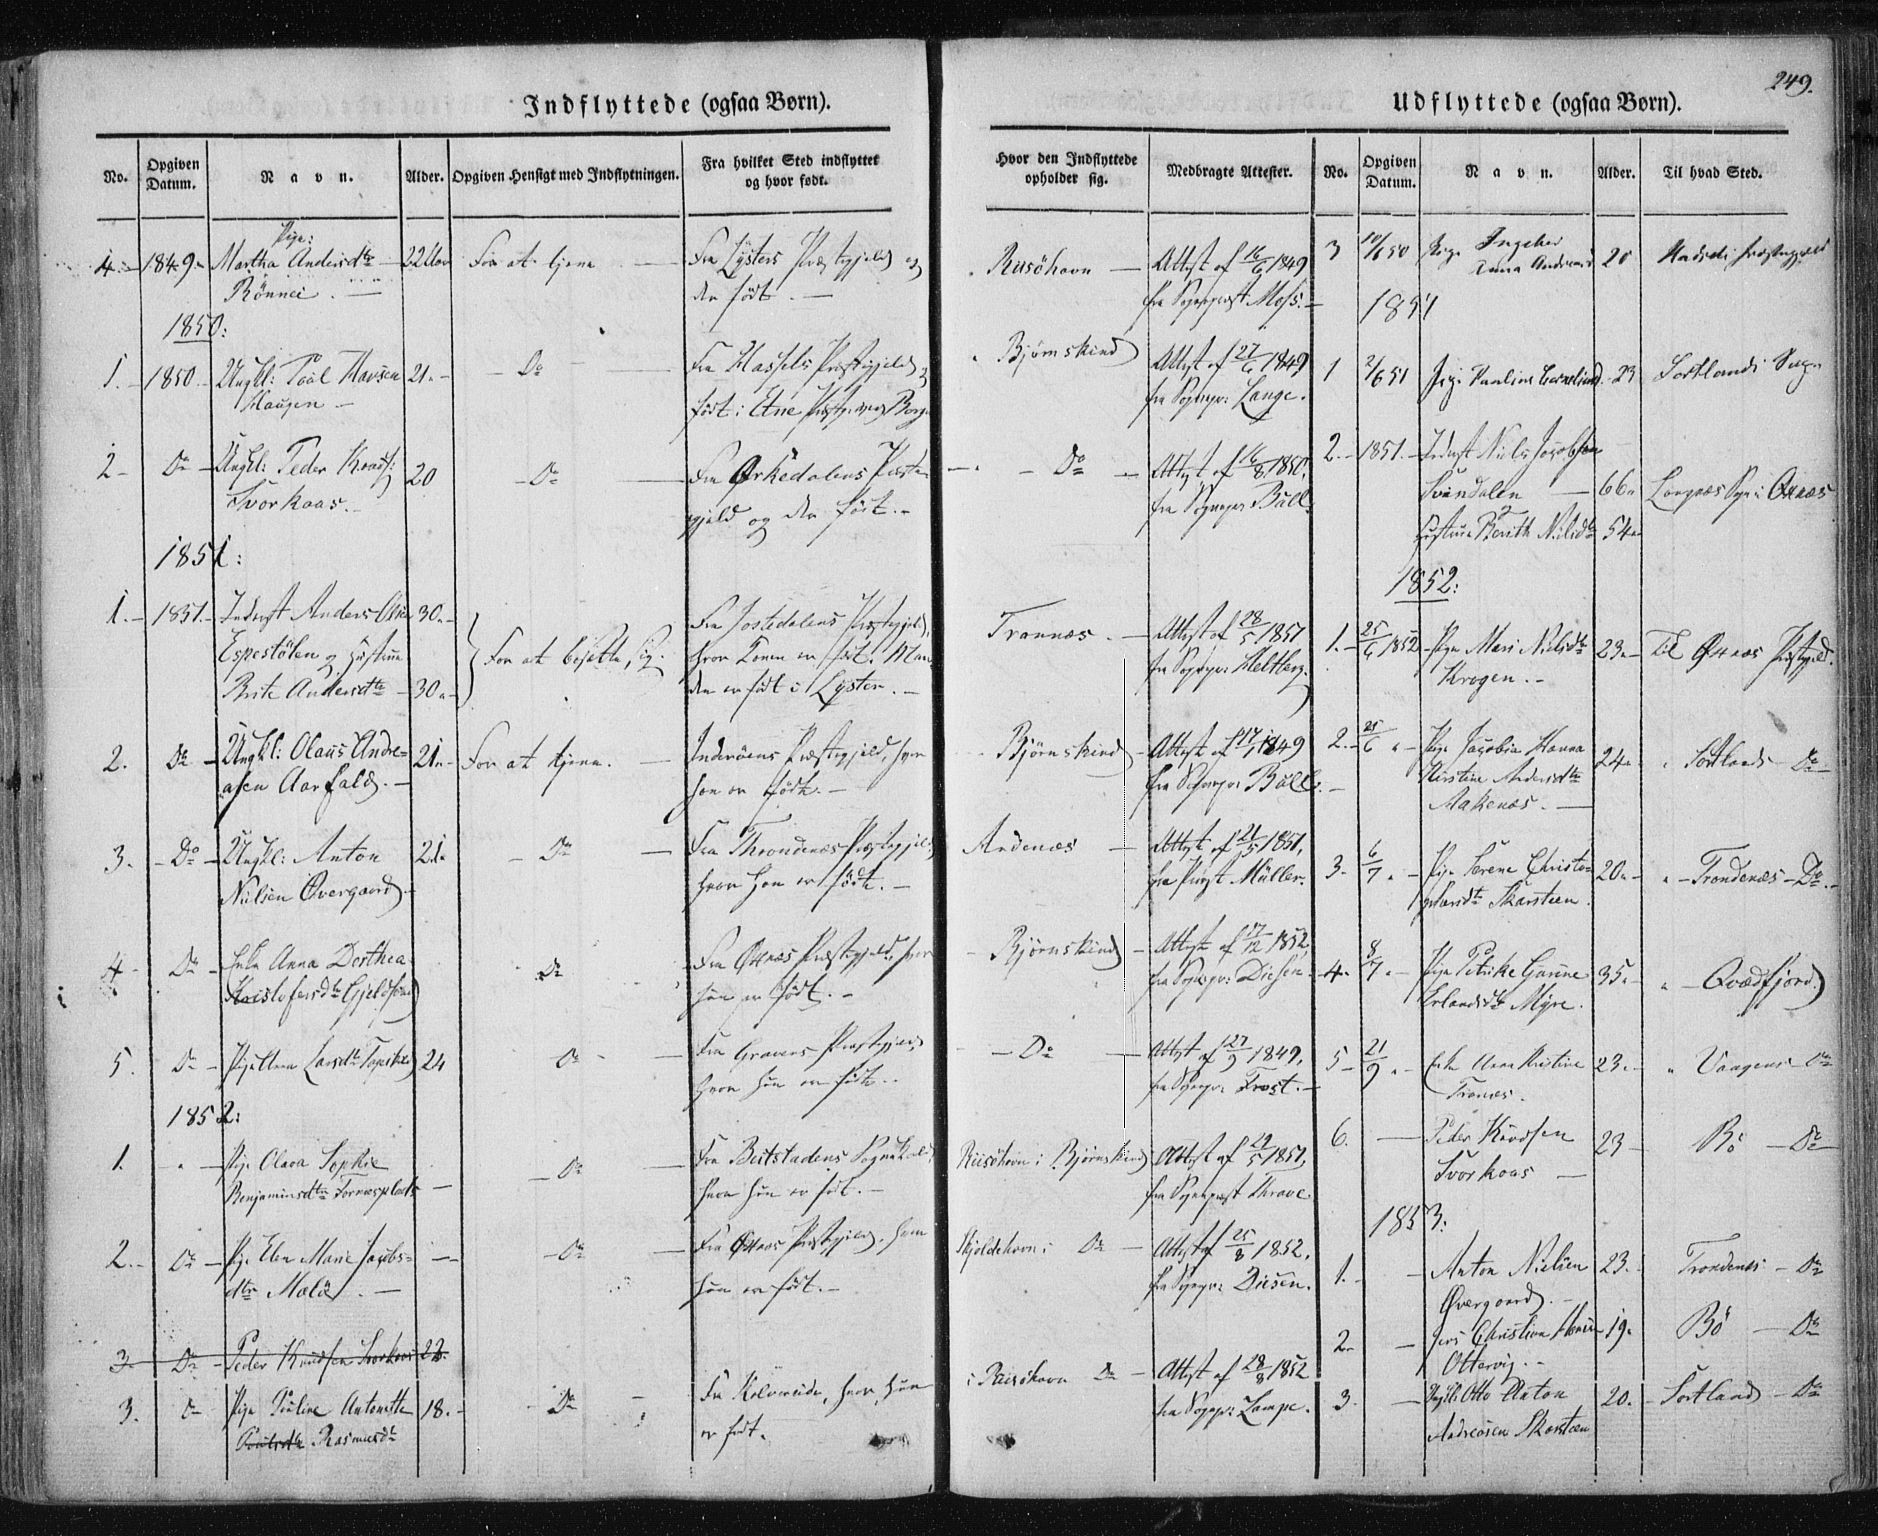 249.
Indflyttede (ogsaa Børn).
No. Opgiven Datum. Navn. Alder. Opgiven Hensigt med Indflytningen. Fra hvilket Sted indflyttet og hvor født. Hvor den Indflyttede opholder sig. Medbragte Attester.
Pige:
4. 1849. Martha Andersdtr 22 For at tjene Fra Lysters Præstegjeld og Risöhavn Attest af 16/6 1849
Rönnei. der født. fra Sognepræst Moss.
1850:
1. 1850. Ungkl: Poul Hansen 21. Do Fra Hassels Præstegjeld Bjørnskind Attest af 27/6 1849
Haugen født i Etne fra Sognepr: Lange.
2 Do Ungkl: Peder Knuds: 20 Do Fra Ørkedalens Præste- Do Attest af 16/8 1850,
Svorkaas. gjeld og der født. fra Sognepr: Bull.
1851:
1. 1851. Inderst Anders 30. Fra Jostedalens Præstegjeld, Trannæs. Attest af 28/5 1851
Espestölen og Hustrue For at bosætte sig. hvor Konen er født. Man- fra Sognepr: Heltberg.
Brite Andersdtr 30. den er født i Lyster.
2. Do Ungkl: Olaus Andre- 21. For at tjene. Inderøens Præstegjeld, hvor Bjørnskind Attest af 1849
asen Aarfald. han er født. fra Sognepr: Bull.
3. Do Ungkl: Anton 21. Do Fra Throndenæs Præstegjeld Andenæs Attest af 21/5 1851,
Nilsen Overgaard hvor han er født. fra Præst. Müller.
4 Do Enke Anna Dorthea Do Fra Öxnæs Præstegjeld, hvor Bjørnskind Attest af 17/12 1852
Kristofersdtr hun er født. fra Sognepr: Diesen
5. Do Pige Larsdtr 24 Do Fra Gravens Præstegjeld Do Attest af 27/9 1849,
hvor hun er født. fra Sognepr: Frost.
1852:
1. " Pige Olava Sophie Do Fra Beitstadens Risöhavn i Bjørnskind Attest af 29/5 1851,
Benjaminsdtr Fornæsplads hvor hun er født. fra Sognepræst
2. Do Pige Elen Marie Jacobs- Do Fra Öxnæs Præstegjeld, hvor Skjoldehavn i Do Attest af 25/8 1852,
dtr Melø hun er født. fra Sognepr: Diesen.
3. Do Peder Knudsen Svorkaas 22.
3. Do Pige Pauline Antonette 18. Do Fra Kolvereide, hvor hun i Risöhavn Do Attest af 28/8 1852
Rasmusdtr er født. fra Sognepr: Lampe.
Udflyttede (ogsaa Børn).
No. Opgiven Datum. Navn. Alder. Til hvad Sted.
3 10/6 50 Pige Ingeber
Anna 20 Hadsel Præstegjeld
1851
1 2/6 51 Pige Pauline 23 Sortlands Sogn
2. 1851. Inderst Nils Jacobsen
Svindalen 66. Langnæs Sogn i Öxnæs
Hustrue Berith Nilsdtr 54.
1852:
1. 25/6 1852 Pige Mari Nilsdtr 23. Til Øxnæs Præstegjeld.
Krogen.
2. 25/6 " Pige Jacobia Hanna
Kirstine Andersdtr 24. " Sortlands Do
Aakenæs.
3. 6/7 " Pige Serene Christo- 20. " Trondenæs Do
phersdtr Skarsteen.
4. 8/7 " Pige Petrike 35. " Qvædfjord
Erlandsdtr Myre.
5 21/9 " Enke Anna Kristine 23. " Vaagens Do
Tranæs.
6. Peder Knudsen 23 Bö Do
Svorkaas
1853:
1. Anton Nielsen 23. Trondenæs Do
Øvergaard.
2. Jens Christian 19. Bö Do
Ottervig.
3. Ungkl: Otto Anton 20. Sortland Do
Andreasen Skarsteen